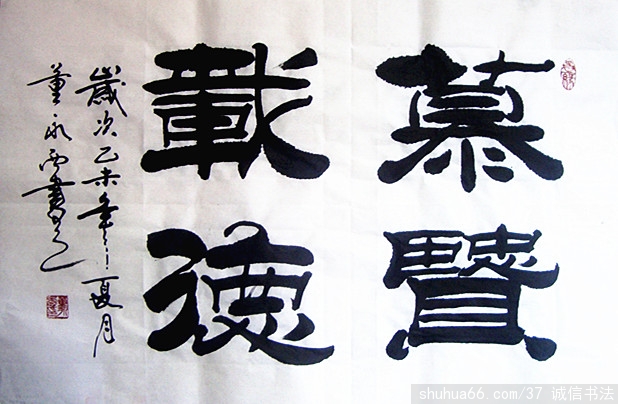 慕賢
載德
歲次乙未年夏月
董永西書
shuhua66.com/37 诚信书法